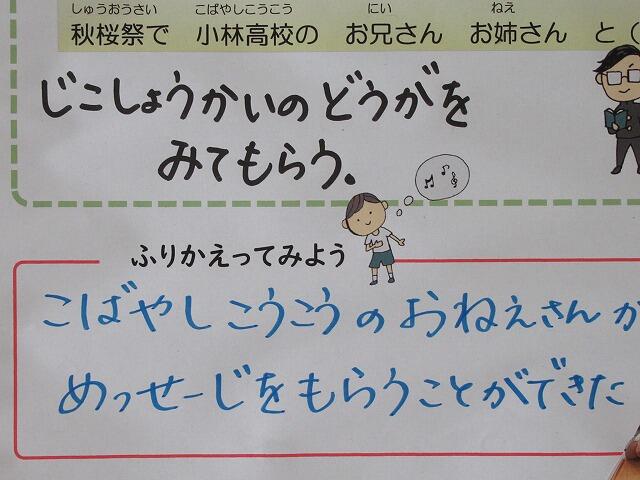 しゅうおうさい こばやしこうこう にい ねえ
秋桜祭で 小林高校の お兄さん お姉さん と（
じこしょうかいのどうがを
みてもらう.
ふりかえってみよう
こばやしこうこうのおねえさんか
めっせーじをもらうことができた